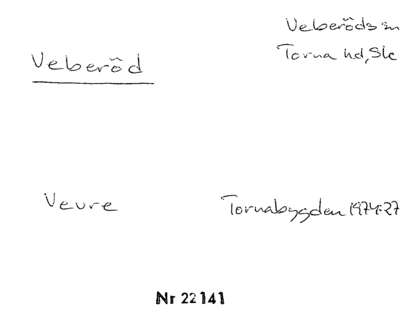 Veberöd
Veberöds sn
Torna hd, Sk
Veure
Tornabygden 1974:27
Nr 22141